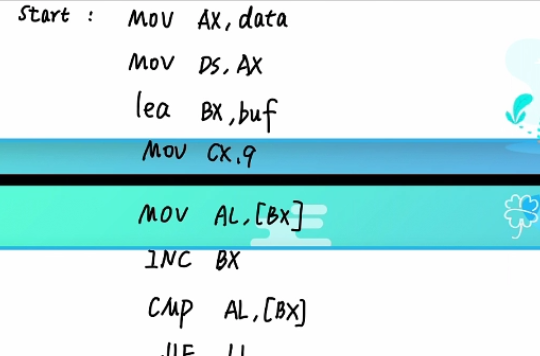 Start : MOV AX, data
MOV DS, AX
lea BX, buf
MOV CX, 9
MOV AL, [BX]
INC BX
CMP AL, [BX]